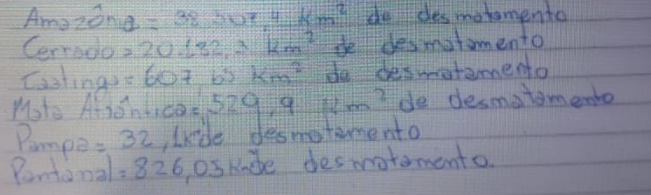 Amazôna = 38.507,4 Km² de desmatamento
Cerrado = 20.122,2 km² de desmatamento
Caatinga = 607,65 Km² de desmatamento
Mata Atlântica = 529,9 Km² de desmatamento
Pampa = 32,1 de desmatamento
Pantanal = 826,05 de desmatamento.